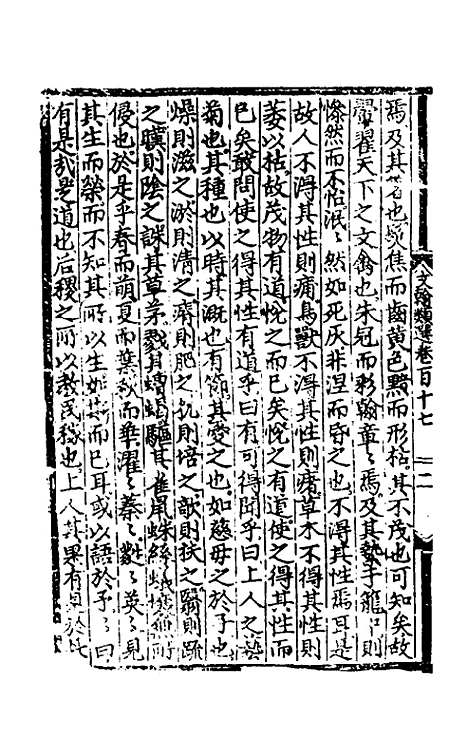 焉及其苦也髮焦而齒黄色黯而形枯其不茂也可知矣故
翟天下之文禽也朱冠而彩翰章〻焉及其蟄于籠中則
慘然而不怡泯〻然如死灰非涅而昏之也不得其性焉耳是
故人不得其性則病鳥獸不得其性則瘠草木不得其性則
萎以枯故茂物有道悅之而已矣悅之有道使之得其性而
已矣敢問使之得其性有道乎曰有可得聞乎曰上人之藝
菊也其種也以時其漑也有節其愛之也如慈母之於子也
燥則滋之淤則清之瘠則肥之仆則培之欹則扶之翳則疏
之暵則陰之誅其草茅戮其蟊蝎驅其雀鼠蛛絲蟻壤無所
侵也於是乎春而萌夏而葉秋而華濯〻蓁〻〻英〻見
其生而榮而不知其所以生如是而已耳或以語於予〻曰
有是哉是道也后稷之所以教民穡也上人其果有得於此
文翰類選卷百十七
二